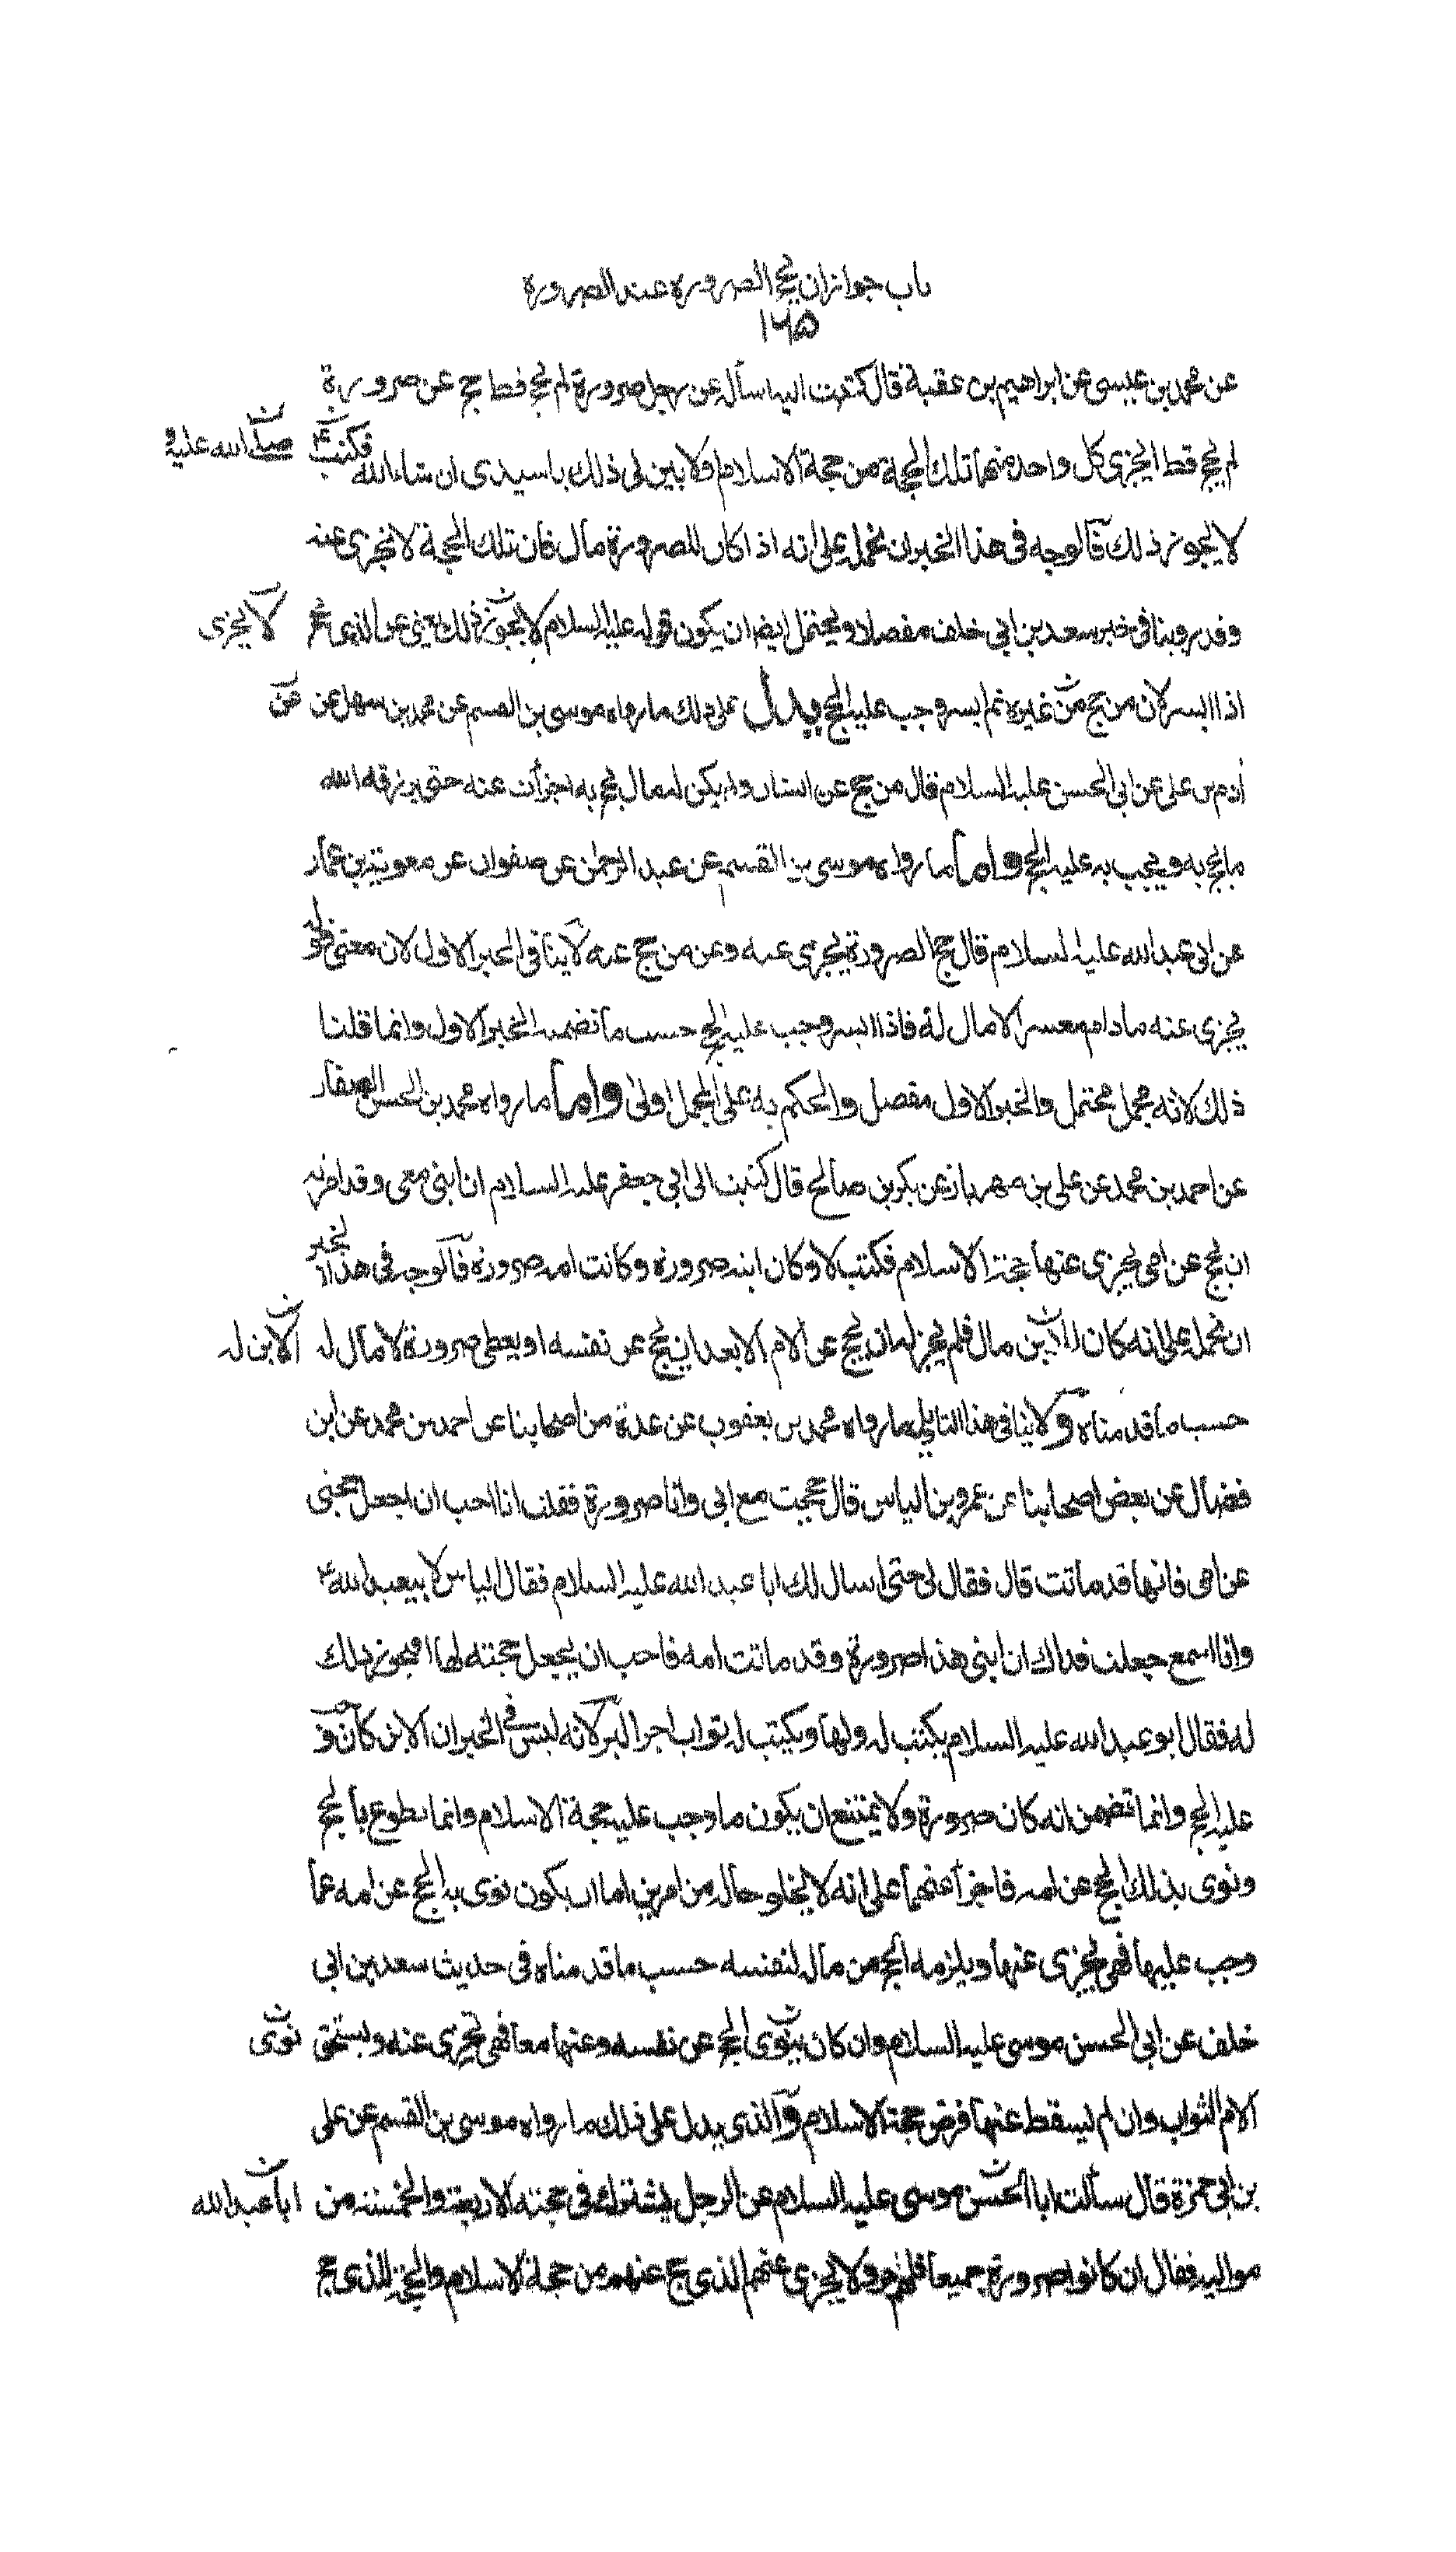 باب جواز ان يحج الصرورة عند الصرورة
١٦٥
عن محمد بن عيسى عن ابراهيم بن عقبة قال كتبت اليه اساله عن رجل صرورة لم يحج قط حج عن صرورة
لم يحج قط ايجزى كل واحد منهما تلك الحجة من حجة الاسلام ولا بين لى ذلك ياسيدى ان شاء الله فكتب ع
صلى الله عليه
لا يجوز ذلك فالوجه فى هذا الخبر ان نحمله على انه اذا كان للصرورة مال فان تلك الحجة لا تجزى عنه
وقد روينا فى خبر سعد بن ابى خلف مفصلا ويحتمل ايضا ان يكون قوله عليه السلام لا يجوز ذلك يعنى عن الذى يحج
لا يجزى
اذا ايسر لان من حج من غيره ثم ايسر وجب عليه الحج يدل على ذلك ما رواه موسى بن القسم عن محمد بن سهل عن
عن
ادم بن على عن ابى الحسن عليه السلام قال من حج عن انسان ولم يكن له مال يحج به اجزأت عنه حتى يرزقه الله
ما يحج به ويجب به عليه الحج واما ما رواه موسى بن القسم عن عبد الرحمن عن صفوان عن معوية بن عمار
عن ابى عبد الله عليه السلام قال حج الصرورة يجزى عنه وعن من حج عنه لا ينافى الخبر الاول لان معنى قوله
يجزى عنه ما دام معسرا لا مال له فاذا ايسر وجب عليه الحج حسب ما تضمنه الخبر الاول وانما قلنا
ذلك لانه مجمل محتمل والخبر الاول مفصل والحكم به على المجمل اولى واما ما رواه محمد بن الحسن الصفار
عن احمد بن محمد عن على بن مهزيار عن بكر بن صالح قال كتبت الى ابى جعفر عليه السلام ان ابنى معى وقد امرته
ان يحج عن امى يجزى عنها حجة الاسلام فكتب لا وكان ابنه صرورة وكانت امه صرورة فالوجه فى هذا الخبر
ان نحمله على انه كان للابن مال فلم يجز له ان يحج عن الام الا بعد ان يحج عن نفسه او يعطى صرورة لا مال له
الابن له
حسب ما قدمناه ولا ينافى هذا التاويل ما رواه محمد بن يعقوب عن عدة من اصحابنا عن احمد بن محمد عن ابن
فضال عن بعض اصحابنا عن عمرو بن الياس قال حججت مع ابى وانا صرورة فقلت انا احب ان اجعل حجتى
عن امى فانها قد ماتت قال فقال لى حتى اسال لك ابا عبد الله عليه السلام فقال الياس لابى عبد الله ع
وانا اسمع جعلت فداك ان ابنى هذا صرورة وقد ماتت امه فاحب ان يجعل حجته لها افيجوز ذلك
له فقال ابو عبد الله عليه السلام يكتب له ولها ويكتب له ثواب اجر البر لانه ليس فى الخبر ان الابن كان قد وجب
عليه الحج وانما تضمن انه كان صرورة ولا يمتنع ان يكون ما وجب عليه حجة الاسلام وانما يطوع بالحج
ونوى بذلك الحج عن امه فاجزأ عنهما على انه لا يخلو حاله من امرين اما ان يكون نوى به الحج عن امه عما
وجب عليها فهى تجزى عنها ويلزمه الحج من ماله لنفسه حسب ما قدمناه فى حديث سعد بن ابى
خلف عن ابى الحسن موسى عليه السلام وان كان ينوى الحج عن نفسه وعنها معا فهى تجزى عنه ويستحق
نوى
الام الثواب وان لم يسقط عنها فرض حجة الاسلام والذى يدل على ذلك ما رواه موسى بن القسم عن على
بن ابى حمزة قال سألت ابا الحسن موسى عليه السلام عن الرجل يشترك فى حجته الاربعة والخمسة من
ابا عبد الله
مواليه فقال ان كانوا صرورة جميعا فلهم اجر ولا يجزى عنهم الذى حج عنهم من حجة الاسلام والحجة للذى حج